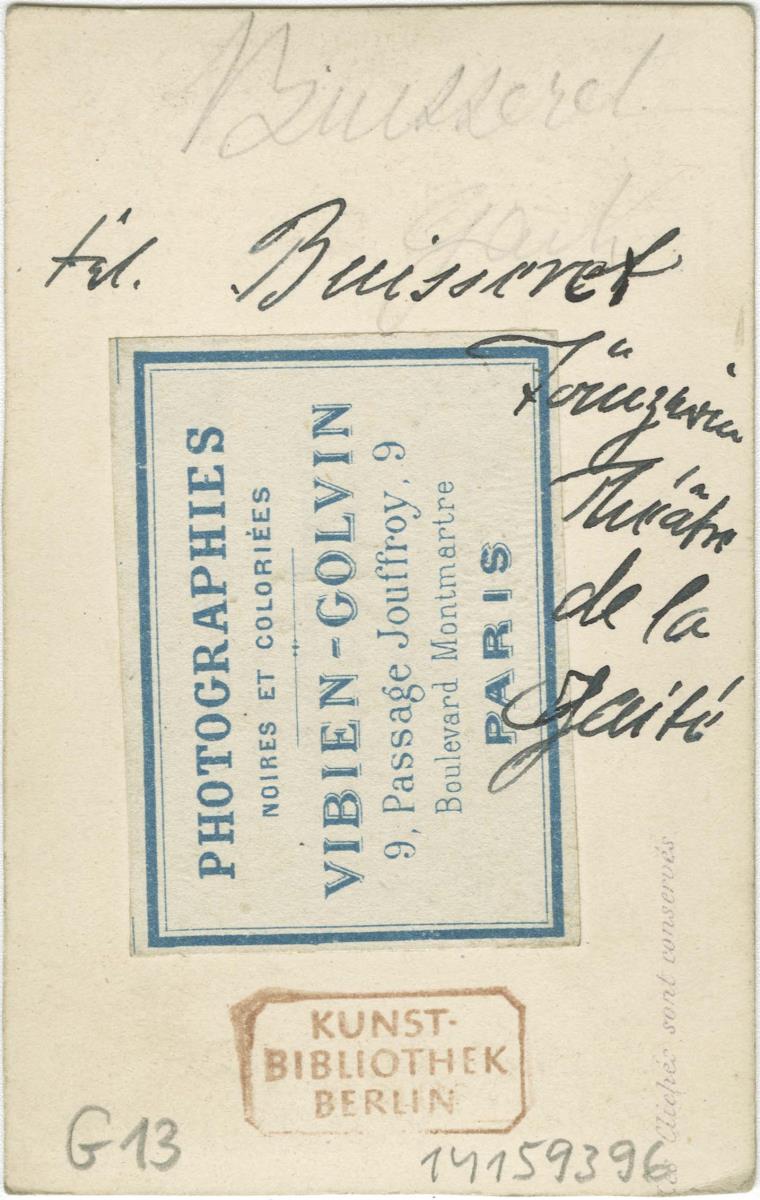 Buisseret
Gaité
Frl. Buisseret
Tänzerin
Théâtre
de la
Gaité
PHOTOGRAPHIES
NOIRES ET COLORIÉES
VIBIEN-GOLVIN
9, Passage Jouffroy, 9
Boulevard Montmartre
PARIS
Clichés sont conservés
KUNST-
BIBLIOTHEK
BERLIN
G 13
14159396